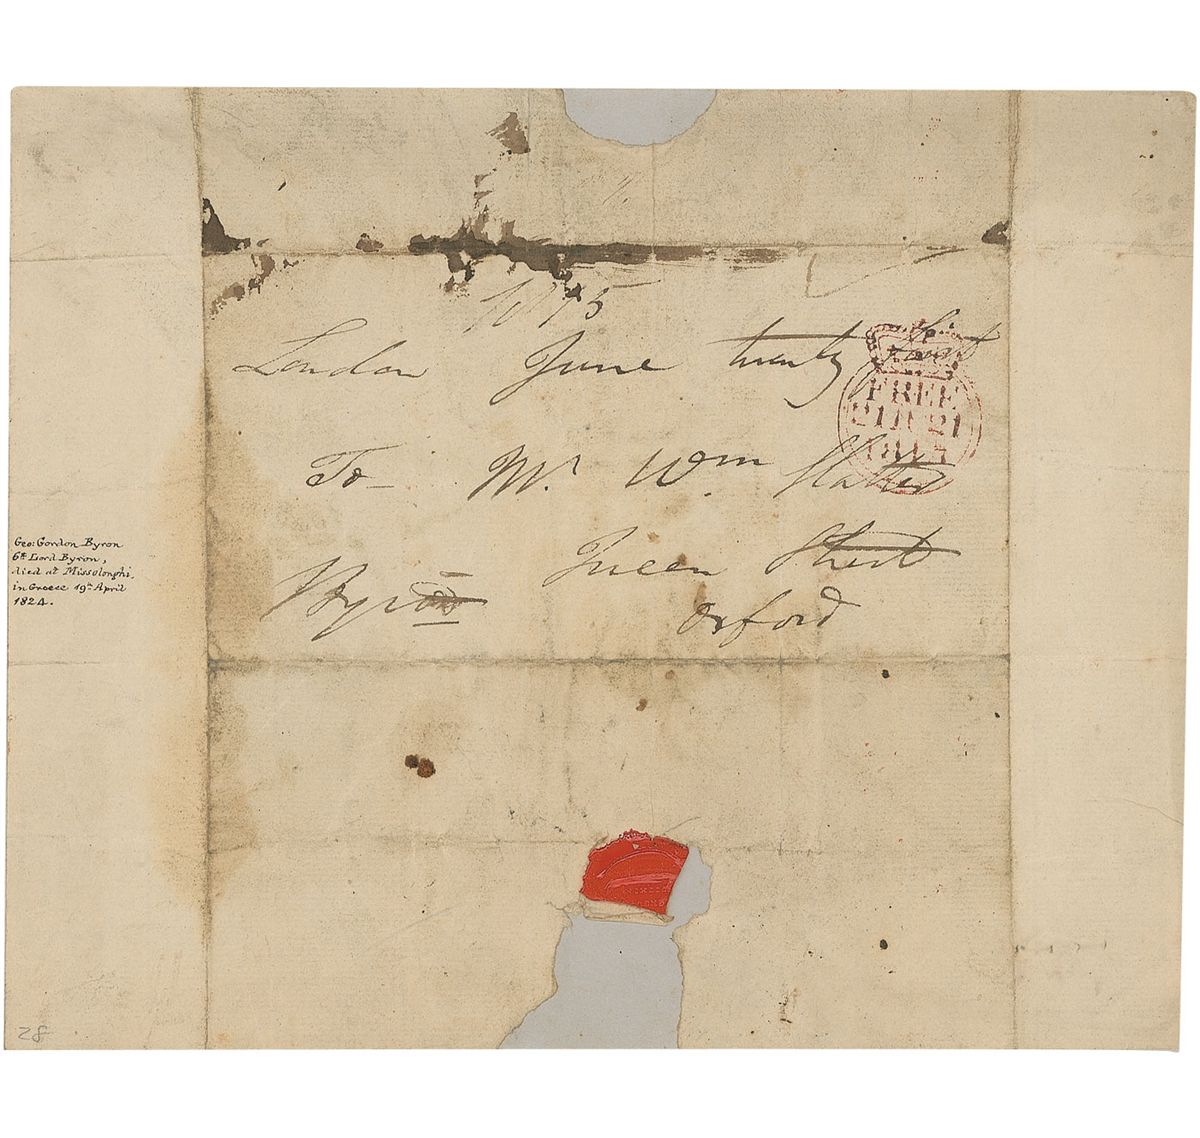 1815
London June twenty first
To Mr. Wm Slatter
Queen Street
Byron
Oxford
FREE
21 JU 21
Geo: Gordon Byron
6th Lord Byron,
died at Missolonghi,
in Greece 19th April
1824.
28